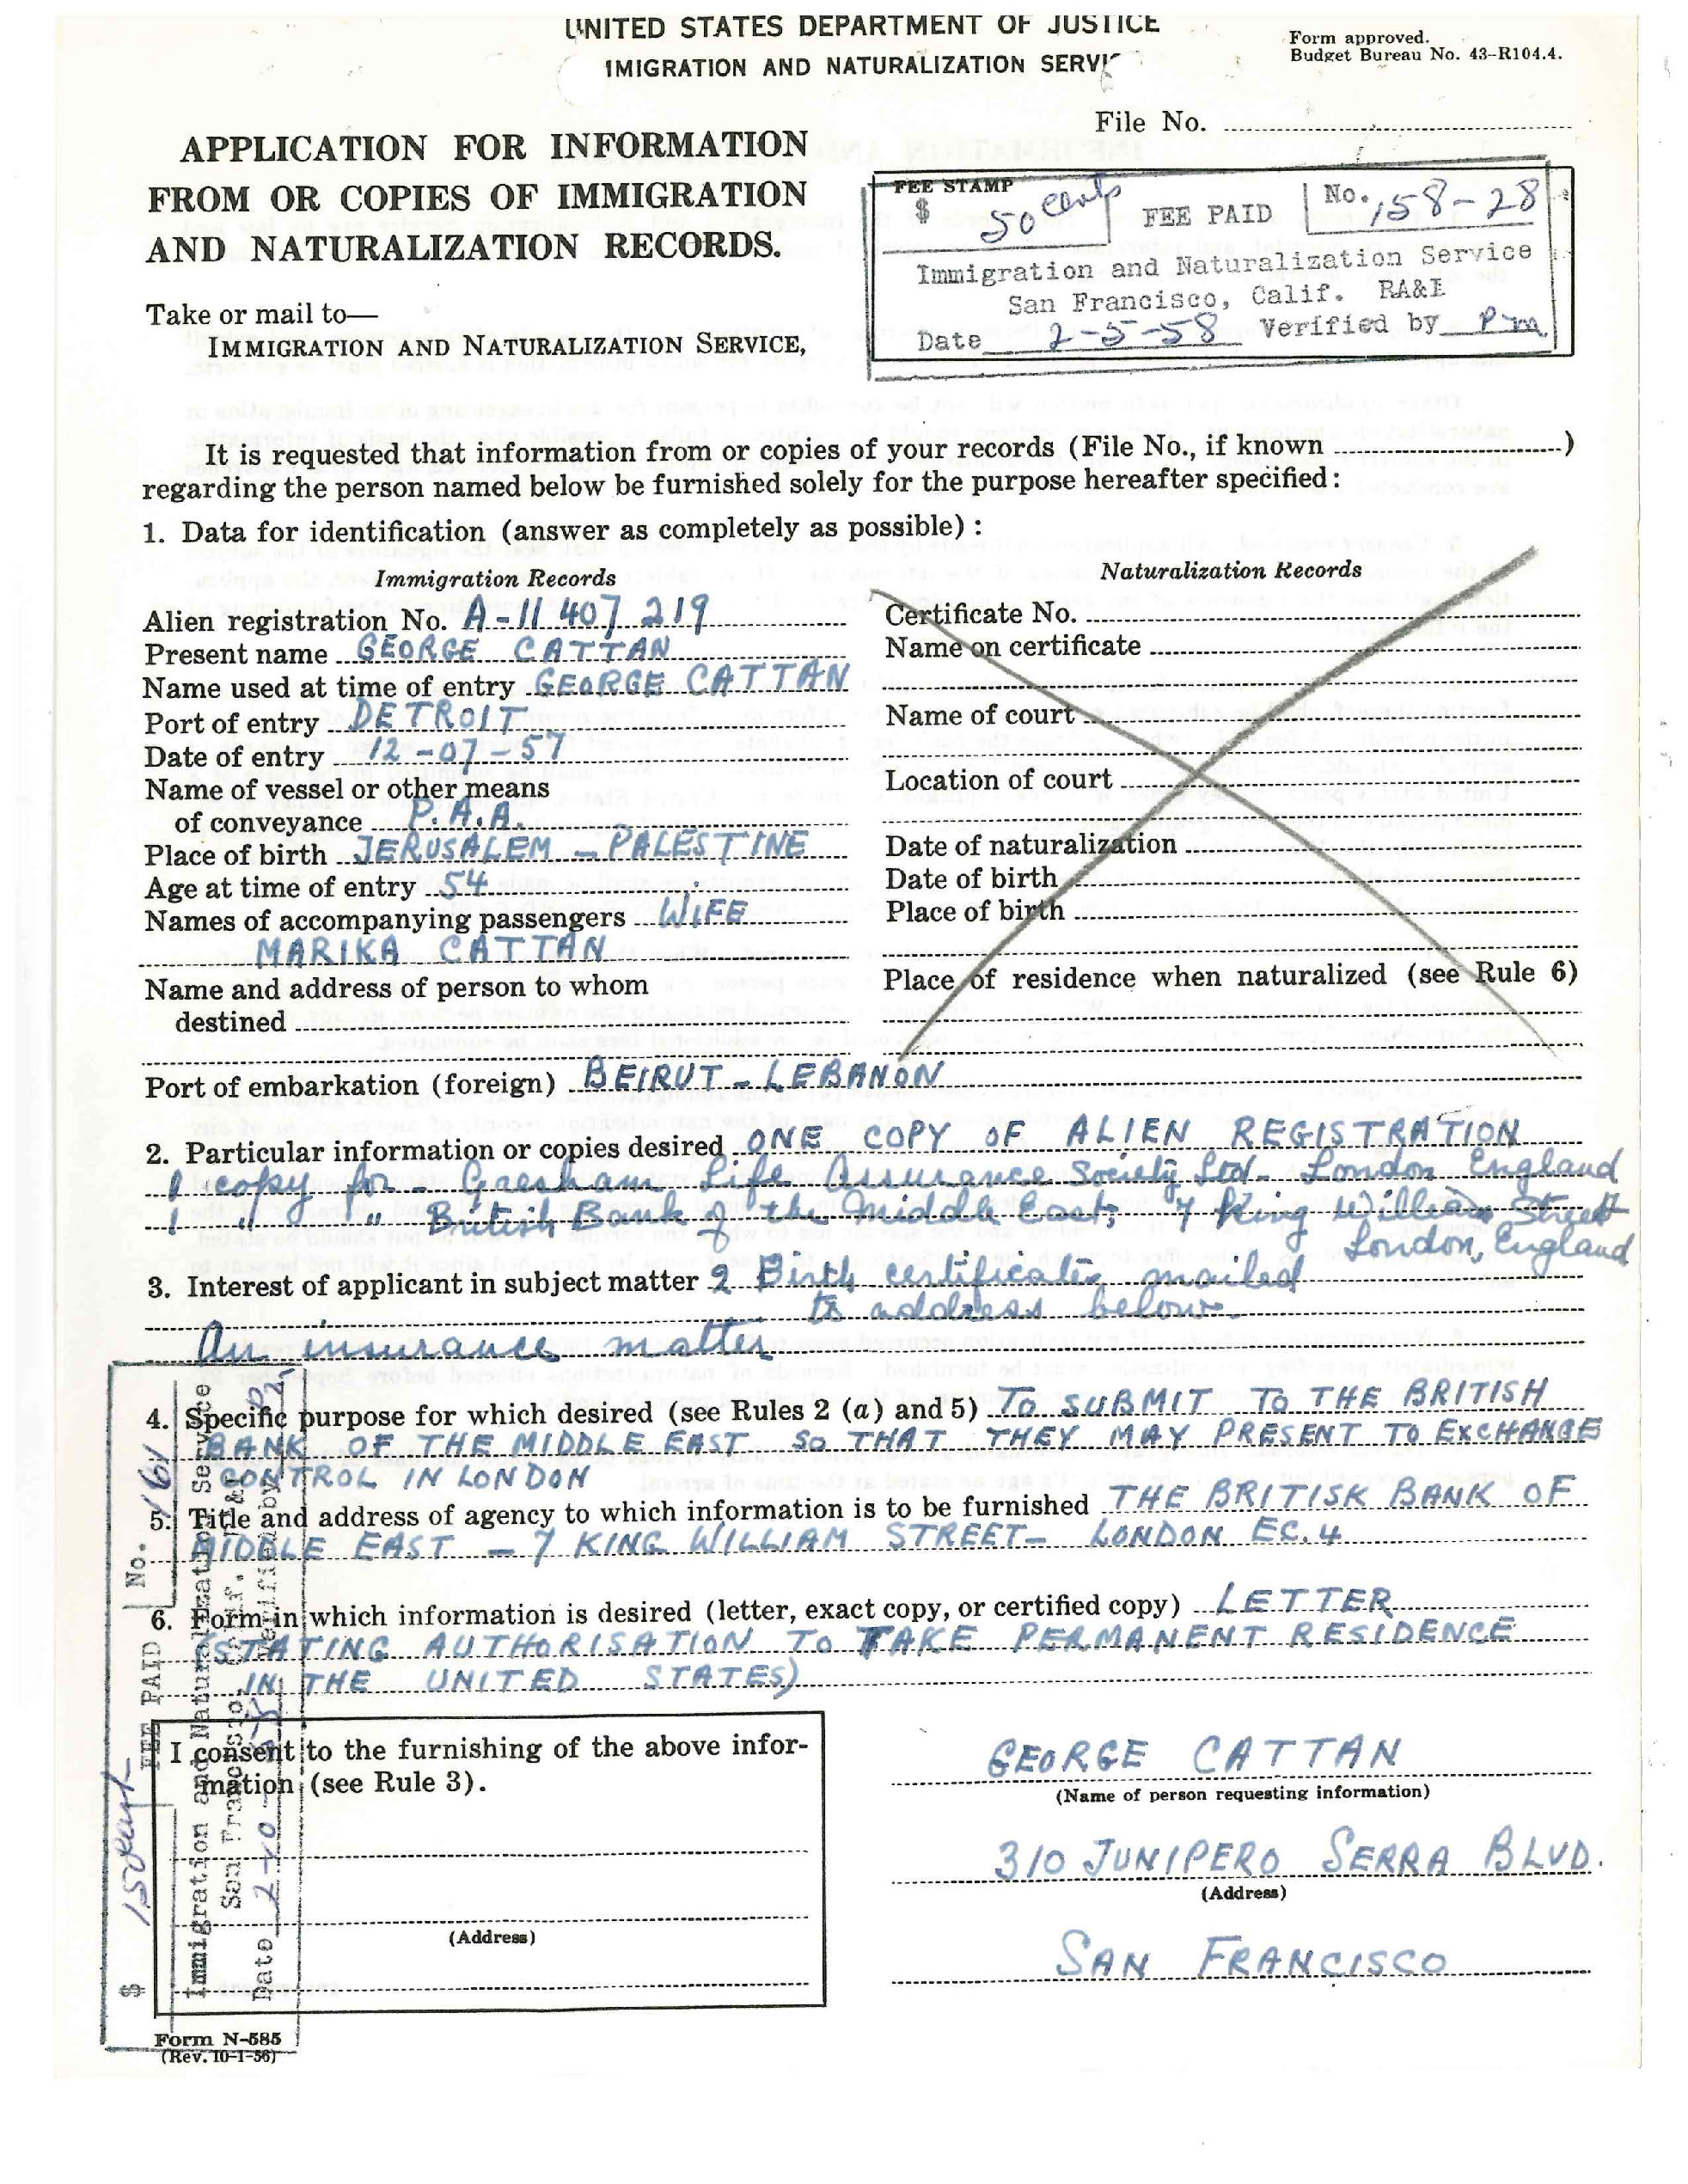 UNITED STATES DEPARTMENT OF JUSTICE
IMIGRATION AND NATURALIZATION SERVI
Form approved.
Budget Bureau No. 43-R104.4.
File No.
APPLICATION FOR INFORMATION
FROM OR COPIES OF IMMIGRATION
AND NATURALIZATION RECORDS.
FEE STAMP
$ 50 cents FEE PAID No. 158-28
Immigration and Naturalization Service
San Francisco, Calif. RA&I
Date 2-5-58 Verified by Pm
Take or mail to—
IMMIGRATION AND NATURALIZATION SERVICE,
It is requested that information from or copies of your records (File No., if known )
regarding the person named below be furnished solely for the purpose hereafter specified:
1. Data for identification (answer as completely as possible) :
Immigration Records
Alien registration No. A-11 407 219
Present name GEORGE CATTAN
Name used at time of entry GEORGE CATTAN
Port of entry DETROIT
Date of entry 12-07-57
Name of vessel or other means
of conveyance P.A.A.
Place of birth JERUSALEM - PALESTINE
Age at time of entry 54
Names of accompanying passengers WIFE
MARIKA CATTAN
Name and address of person to whom
destined
Naturalization Records
Certificate No.
Name on certificate
Name of court
Location of court
Date of naturalization
Date of birth
Place of birth
Place of residence when naturalized (see Rule 6)
Port of embarkation (foreign) BEIRUT - LEBANON
2. Particular information or copies desired ONE COPY OF ALIEN REGISTRATION
1 copy for - Gresham Life Assurance Society Ltd - London England
1 " " British Bank of the Middle East, 7 King William Street
London, England
3. Interest of applicant in subject matter 2 Birth certificates mailed
to address below.
An insurance matter
4. Specific purpose for which desired (see Rules 2 (a) and 5) TO SUBMIT TO THE BRITISH
BANK OF THE MIDDLE EAST SO THAT THEY MAY PRESENT TO EXCHANGE
CONTROL IN LONDON
5. Title and address of agency to which information is to be furnished THE BRITISK BANK OF
MIDDLE EAST - 7 KING WILLIAM STREET- LONDON EC.4
6. Form in which information is desired (letter, exact copy, or certified copy) LETTER
(STATING AUTHORISATION TO TAKE PERMANENT RESIDENCE
IN THE UNITED STATES)
I consent to the furnishing of the above infor-
mation (see Rule 3).
(Address)
GEORGE CATTAN
(Name of person requesting information)
310 JUNIPERO SERRA BLVD.
(Address)
SAN FRANCISCO
$ FEE PAID No. 161
Immigration and Naturalization Service
San Francisco, Calif.
Date Verified by
Form N-585
(Rev. 10-1-56)